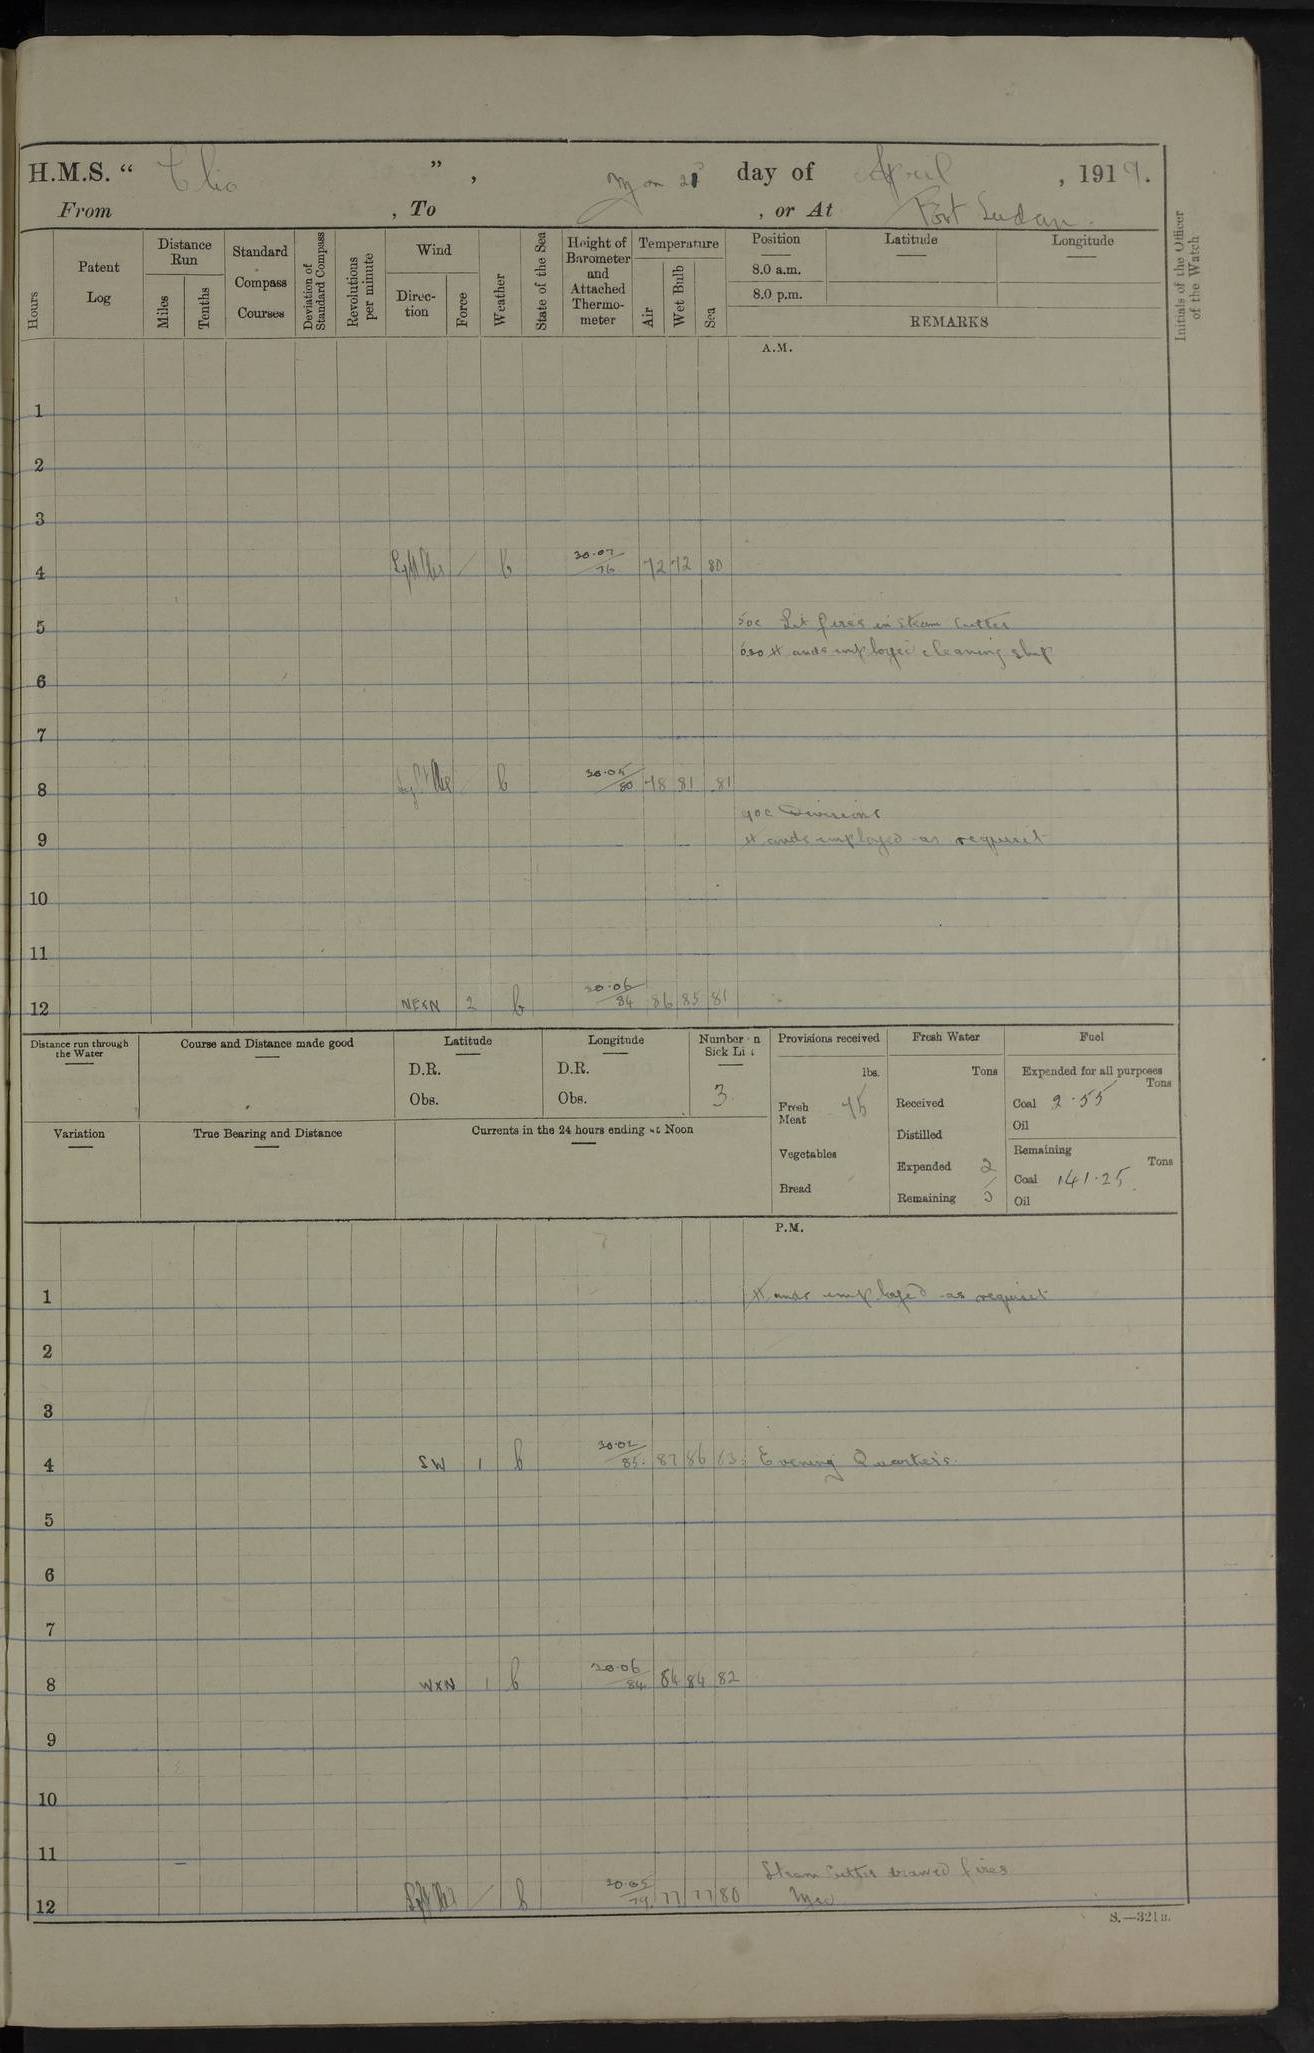 H.M.S. “ Clio ”, Mon 21st day of April, 1919.
From , To , or At Port Sudan.
Hours
Patent Log
Distance Run
Miles
Tenths
Standard Compass Courses
Deviation of Standard Compass
Revolutions per minute
Wind
Direc-tion
Force
Weather
State of the Sea
Height of Barometer and Attached Thermo-meter
Temperature
Air
Wet Bulb
Sea
Position
8.0 a.m.
8.0 p.m.
Latitude
Longitude
REMARKS
Initials of the Officer of the Watch
A.M.
1
2
3
4 / b 30.07/76 72 72 80
5 Lit fires in Steam Cutter
Hands employed cleaning ship
6
7
8 b 30.05/80 78 81 81
Divisions
9 Hands employed as requisit
10
11
12 NExN 2 b 30.06/84 86 85 81
Distance run through the Water
Course and Distance made good
Latitude
D.R.
Obs.
Longitude
D.R.
Obs.
Number on Sick List
3
Provisions received
lbs.
Fresh Meat 75
Vegetables
Bread
Fresh Water
Tons
Received
Distilled
Expended 2
Remaining
Fuel
Expended for all purposes
Tons
Coal 2.55
Oil
Remaining
Tons
Coal 141.25
Oil
Variation
True Bearing and Distance
Currents in the 24 hours ending at Noon
P.M.
1 Hands employed as requisit
2
3
4 SW 1 b 30.02/85 87 86 83 Evening Quarters.
5
6
7
8 WxN 1 b 30.06/84 84 84 82
9
10
11
Steam Cutter drawed fires
12 / b 30.05/79 77 77 80
S.—321B.